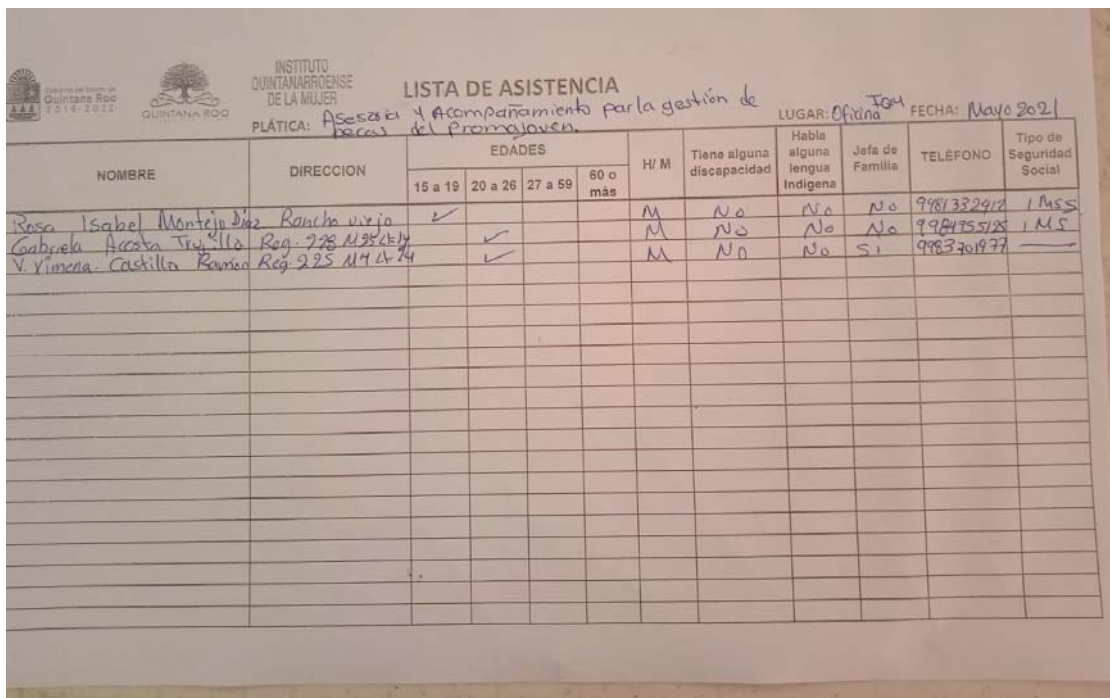 Gobierno del Estado de
Quintana Roo
2016-2022
QUINTANA ROO
INSTITUTO
QUINTANARROENSE
DE LA MUJER
LISTA DE ASISTENCIA
PLÁTICA: Asesoria y Acompañamiento par la gestión de
becas del Promajoven.
LUGAR: Oficina IQM FECHA: Mayo 2021
NOMBRE DIRECCION EDADES H/ M Tiene alguna discapacidad Habla alguna lengua Indigena Jefa de Familia TELÉFONO Tipo de Seguridad Social
15 a 19 20 a 26 27 a 59 60 o más
Rosa Isabel Montejo Diaz Rancho viejo ✓ M No No No 9981332412 IMSS
Gabriela Acosta Trujillo Reg. 228 ✓ M No No No IMS
V. Yimena. Castillo Ramon Reg. 225 ✓ M No No Si 9983701977 —